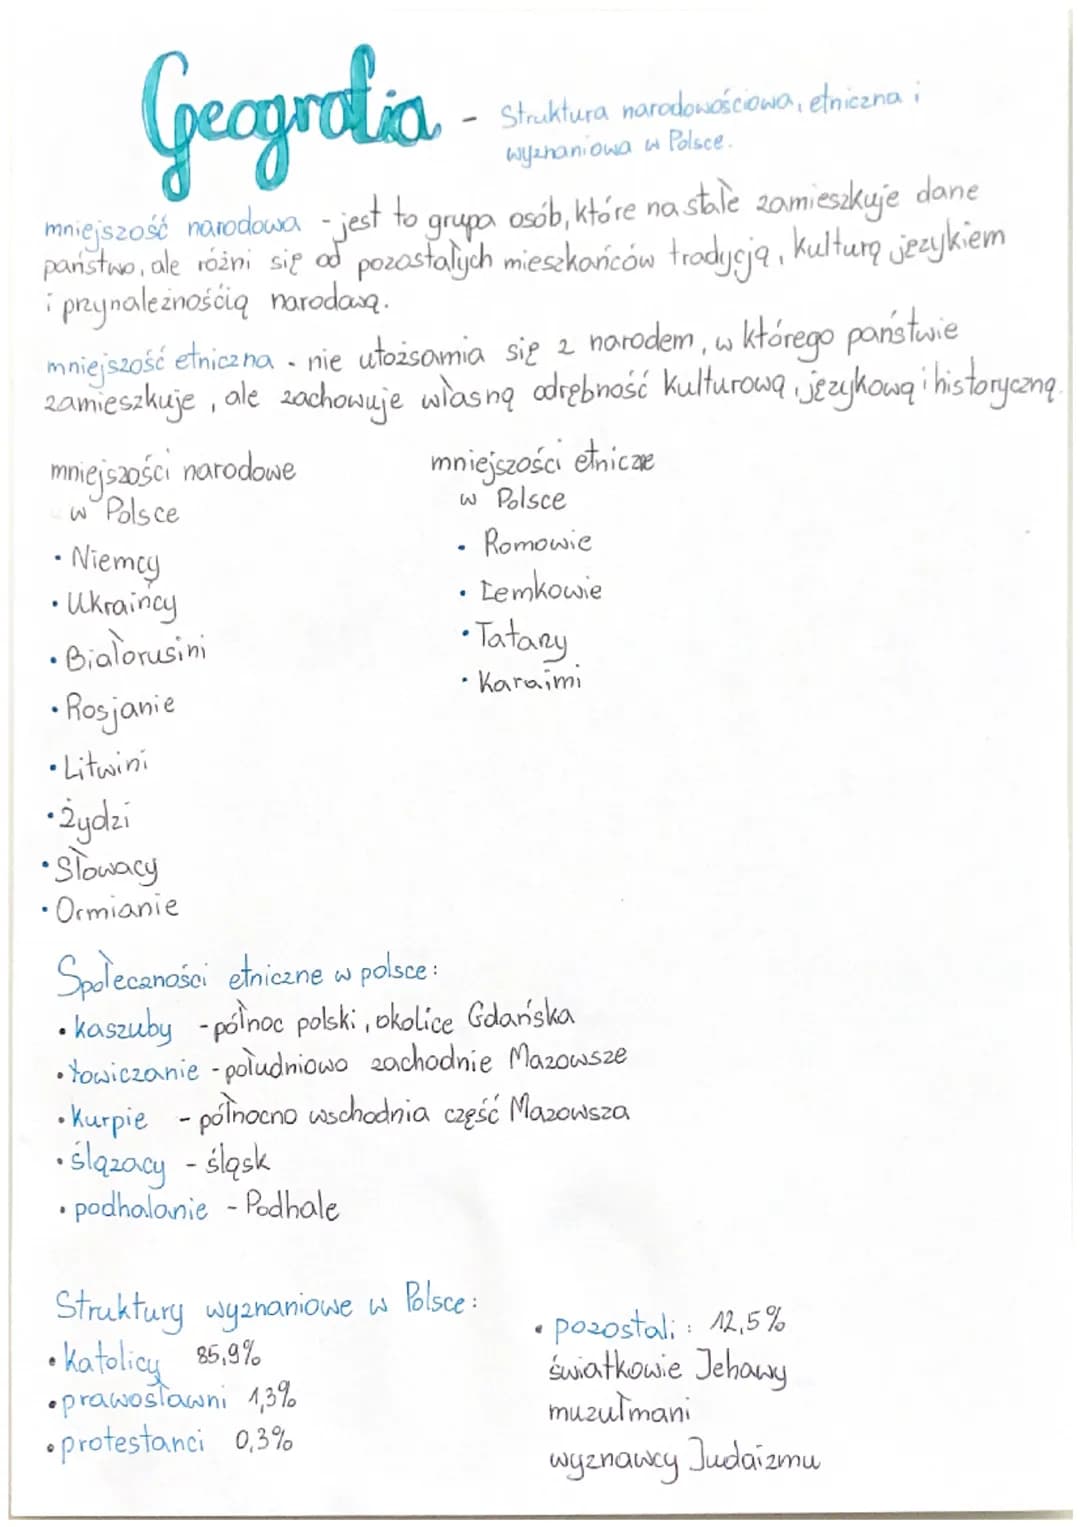 Geografia - Struktura narodowościowa, etniczna i
wyznaniowa w Polsce.
mniejszość narodowa - jest to grupa osób, które na stałe zamieszkuje dane
państwo, ale różni się od pozostałych mieszkańców tradycją, kulturą językiem
i przynależnością narodową.
mniejszość etniczna - nie utożsamia się z narodem, w którego państwie
zamieszkuje, ale zachowuje własną odrębność kulturową, językową i historyczną.
mniejszości narodowe
w Polsce
• Niemcy
• Ukraińcy
• Białorusini
• Rosjanie
• Litwini
• Żydzi
• Słowacy
• Ormianie
mniejszości etnicze
w Polsce
• Romowie
• Łemkowie
• Tatarzy
• Karaimi
Społeczności etniczne w polsce:
• kaszuby - północ polski, okolice Gdańska
• łowiczanie - południowo zachodnie Mazowsze
• kurpie - północno wschodnia część Mazowsza
• ślązacy - śląsk
• podhalanie - Podhale
Struktury wyznaniowe w Polsce:
• katolicy 85,9%
• prawosławni 1,3%
• protestanci 0,3%
• pozostali: 12,5%
światkowie Jehawy
muzułmani
wyznawcy Judaizmu